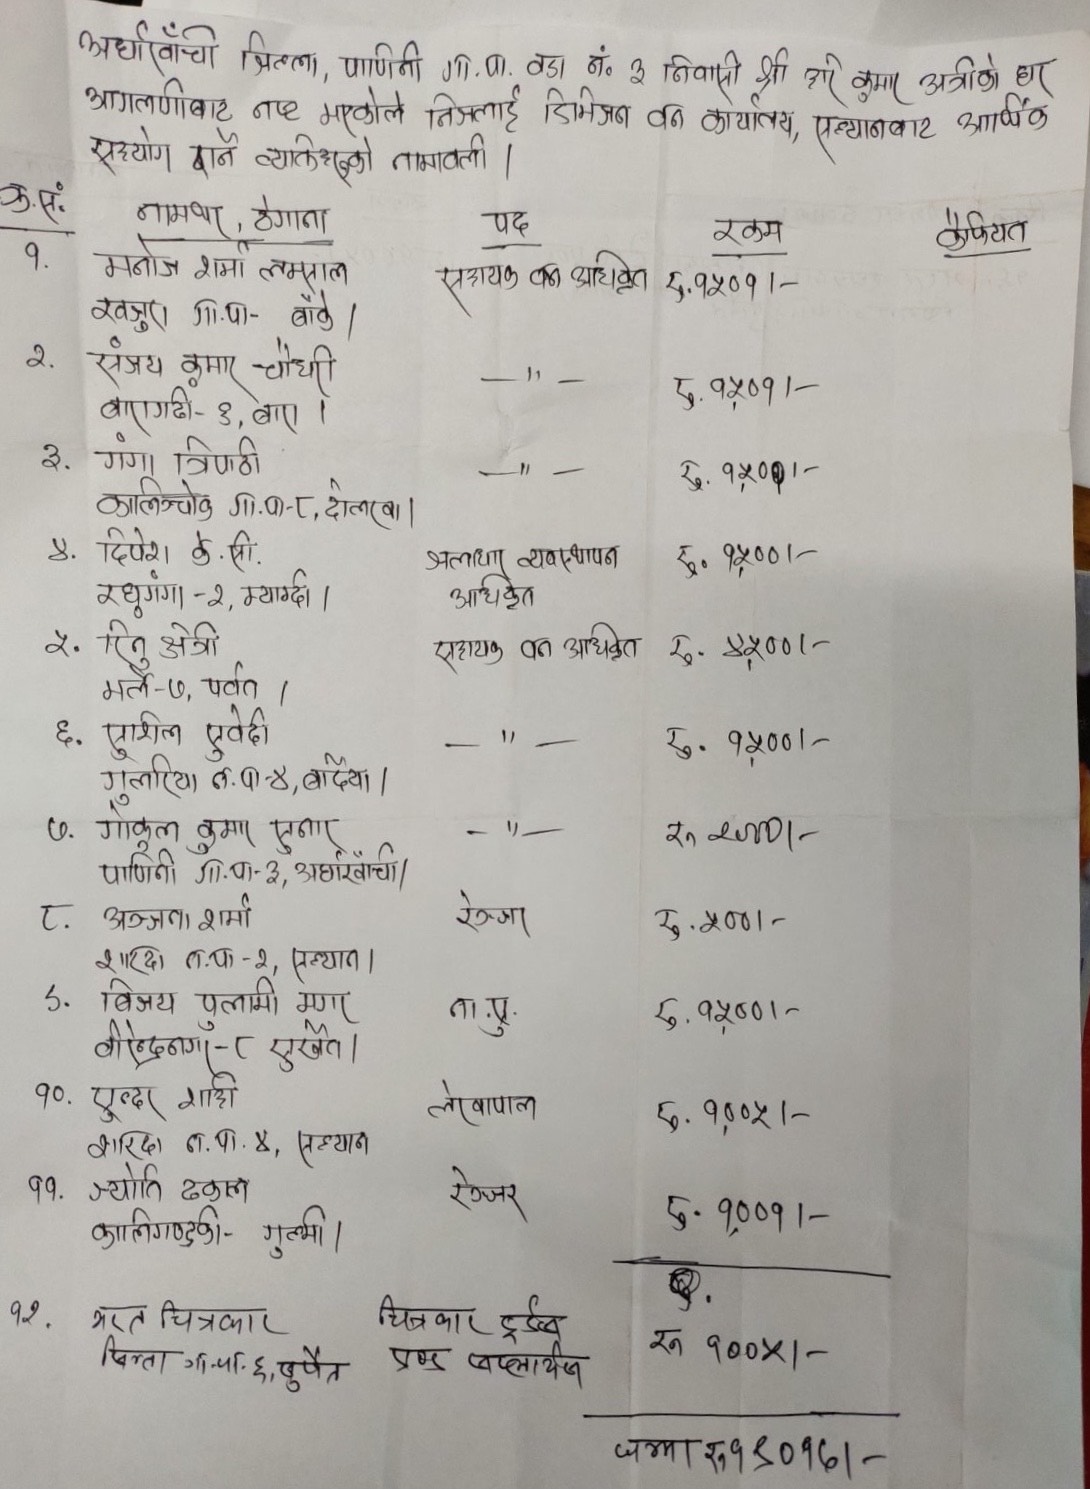 अर्घाखाँची जिल्ला, पाणिनी गा.पा. वडा नं. ३ निवासी श्री हरि कुमार अत्रीको घर
आगलागीबाट नष्ट भएकोले निजलाई डिभिजन वन कार्यालय, सल्यानबाट आर्थिक
सहयोग गर्ने व्यक्तिहरुको नामावली ।
क्र.सं. नामथर, ठेगाना पद रकम कैफियत
१. मनोज शर्मा लम्साल सहायक वन अधिकृत रु.१५०१।-
खजुरा गा.पा- बाँके ।
२. संजय कुमार चौधरी —"— रु. १५०१।-
बारागढी- १, बारा ।
३. गंगा त्रिपाठी —"— रु. १५०१।-
कालिञ्चोक गा.पा-८, दोलखा ।
४. दिपेश के.सी. जलाधार व्यवस्थापन रु. १५००।-
रघुगंगा -२, म्याग्दी । अधिकृत
५. रितु क्षेत्री सहायक वन अधिकृत रु. ४५००।-
मर्ले-७, पर्वत ।
६. सुशिल सुवेदी —"— रु. १५००।-
गुलरिया न.पा-४, बर्दिया ।
७. गोकुल कुमार सुनार —"— रु
पाणिनी गा.पा-३, अर्घाखाँची ।
८. अञ्जना शर्मा रेञ्जर रु. ५००।-
शारदा न.पा -२, सल्यान ।
९. विजय पुलामी मगर ना.सु. रु. १५००।-
वीरेन्द्रनगर-८ सुर्खेत ।
१०. सुन्दर शाही लेखापाल रु. १००५।-
शारदा न.पा. ४, सल्यान
११. ज्योति ढकाल रेञ्जर रु. १००१।-
कालिगण्डकी- गुल्मी ।
रु.
१२. भरत चित्रकार चित्रकार ट्रेडर्स रु १००५।-
गा.पा. ६, एण्ड सप्लायर्स
जम्मा रु १९०१६।-